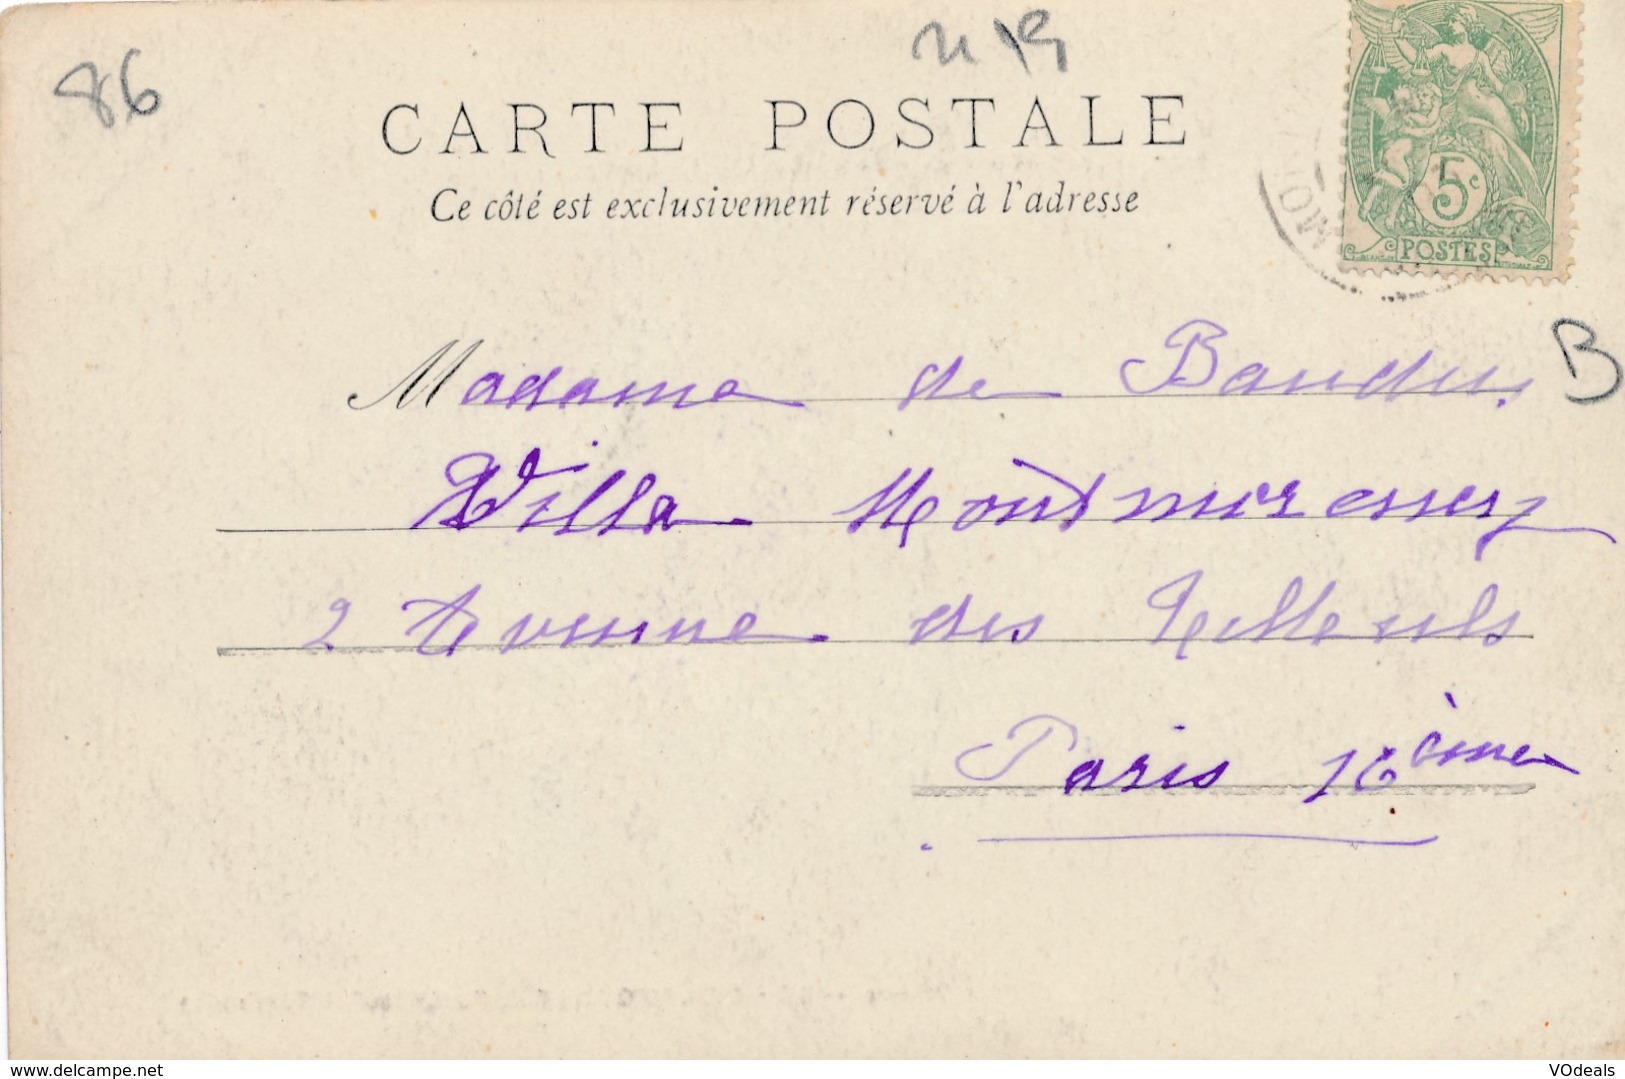 86
CARTE POSTALE
Ce côté est exclusivement réservé à l'adresse
5c
POSTES
B
Madame de Baudus
Villa Montmorency
2 Avenue des Tilleuls
Paris 16ème
www.delcampe.net
VOdeals